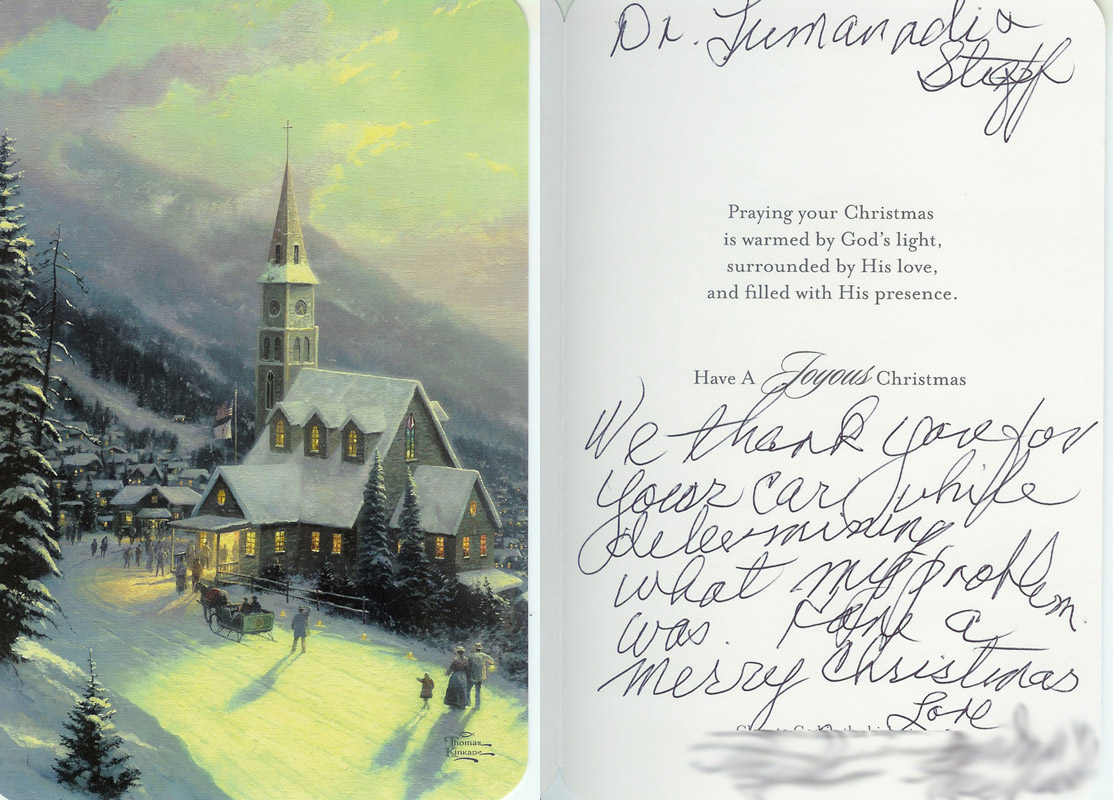 Thomas
Kinkade
Dr. Tumanadi &
Staff
Praying your Christmas
is warmed by God's light,
surrounded by His love,
and filled with His presence.
Have A Joyous Christmas
We thank you for
your car while
determining
what my problem
was. Have a
merry Christmas
Love